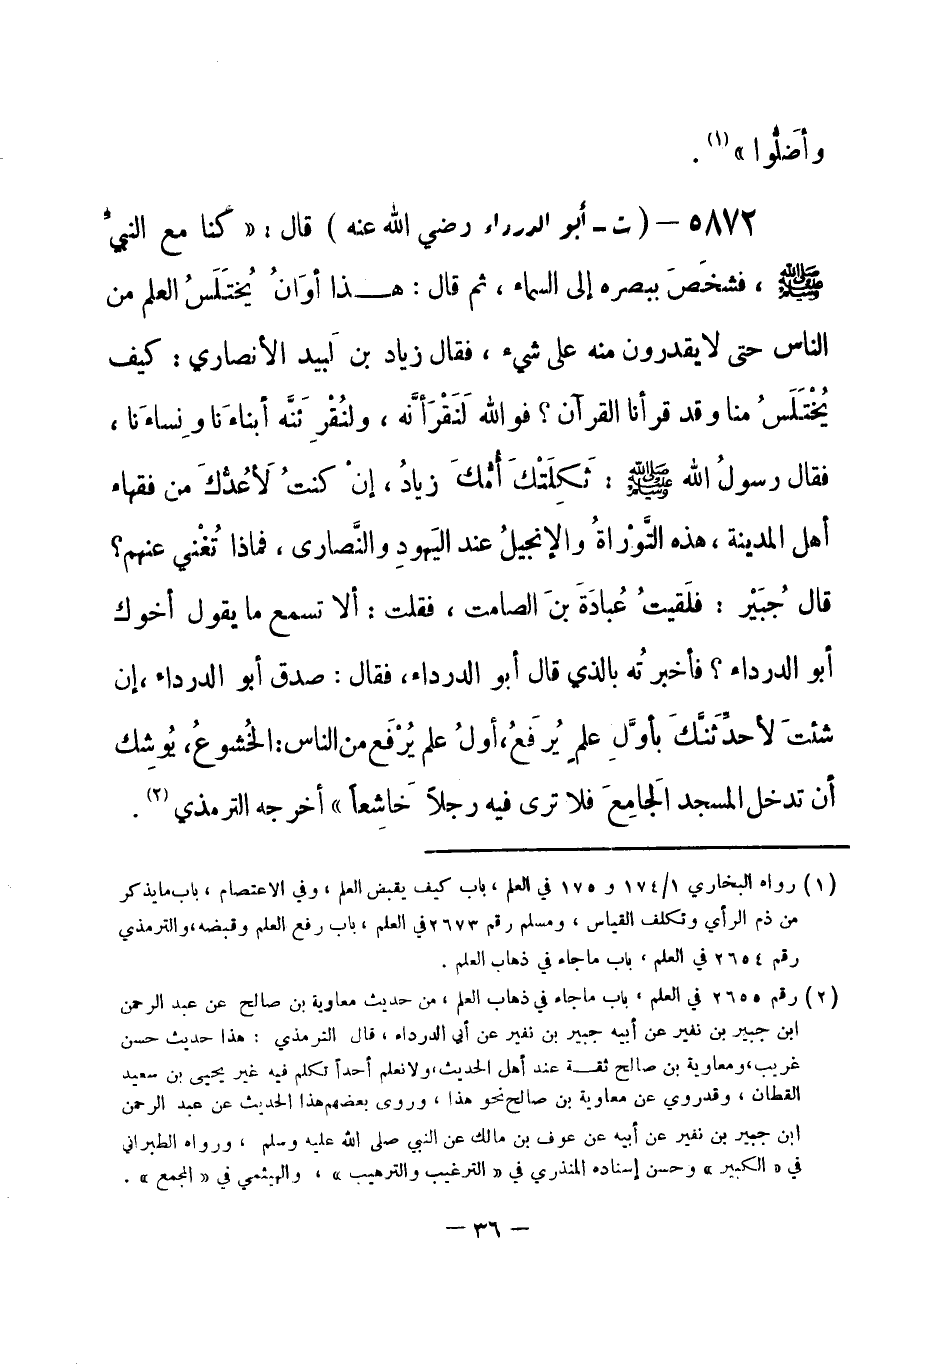 وأَضَلُّوا » (١) .
٥٨٧٢ – ( ت – أبو الدرداء رضي الله عنه ) قال : « كُنا مع النبيِّ
ﷺ ، فشخَصَ ببصره إلى السماء ، ثم قال : هـــذا أوَانُ يُختَلَسُ العلم من
الناس حتى لا يقدرون منه على شيء ، فقال زياد بن لَبيد الأنصاري : كيف
يُخْتَلَسُ منا وقد قرأنا القرآن ؟ فو الله لَنَقْرَأَنَّه ، ولنُقْرِئَنَّه أبناءَنا ونِساءَنا ،
فقال رسولُ الله ﷺ : ثَكِلَتْكَ أُمُّكَ زيادُ ، إنْ كنتُ لَأعُدُّكَ من فقهاء
أهل المدينة ، هذه التَّوْراةُ والإنجيلُ عند اليَهودِ والنَّصارى ، فماذا تُغْني عنهم ؟
قال جُبَيْر : فلَقيتُ عُبادَةَ بنَ الصامت ، فقلت : ألا تسمع ما يقول أخوك
أبو الدرداء ؟ فأخبرتُه بالذي قال أبو الدرداء، فقال : صدق أبو الدرداء ،إن
شئتَ لأحدِّثَنَّكَ بأوَّلِ علمٍ يُرفَعُ،أولُ علم يُرْفَع من الناس: الخُشوعُ، يُوشِك
أن تدخل المسجد الجَامِعَ فلا ترى فيه رجلاً خَاشعاً » أخرجه الترمذي (٢) .
(١) رواه البخاري ١٧٤/١ و ١٧٥ في العلم ، باب كيف يقبض العلم ، وفي الاعتصام ، باب ما يذكر
من ذم الرأي وتكلف القياس ، ومسلم رقم ٢٦٧٣ في العلم ، باب رفع العلم وقبضه،والترمذي
رقم ٢٦٥٤ في العلم ، باب ما جاء في ذهاب العلم .
(٢) رقم ٢٦٥٥ في العلم ، باب ما جاء في ذهاب العلم ، من حديث معاوية بن صالح عن عبد الرحمن
ابن جبير بن نفير عن أبيه جبير بن نفير عن أبي الدرداء ، قال الترمذي : هذا حديث حسن
غريب،ومعاوية بن صالح ثقــة عند أهل الحديث،ولانعلم أحداً تكلم فيه غير يحيى بن سعيد
القطان ، وقدروي عن معاوية بن صالح نحو هذا ، وروى بعضهم هذا الحديث عن عبد الرحمن
ابن جبير بن نفير عن أبيه عن عوف بن مالك عن النبي صلى الله عليه وسلم ، ورواه الطبراني
في « الكبير » وحسن إسناده المنذري في « الترغيب والترهيب » ، والهيثمي في « المجمع » .
– ٣٦ –